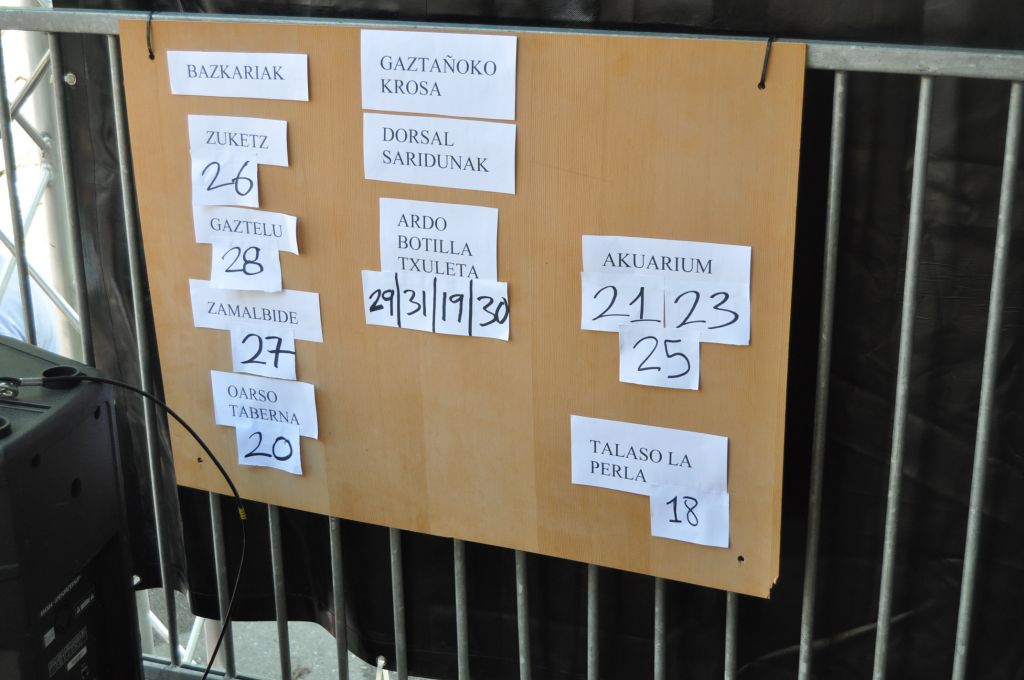 BAZKARIAK
ZUKETZ
26
GAZTELU
28
ZAMALBIDE
27
OARSO
TABERNA
20
GAZTAÑOKO
KROSA
DORSAL
SARIDUNAK
ARDO
BOTILLA
TXULETA
29|31|19|30
AKUARIUM
21 23
25
TALASO LA
PERLA
18